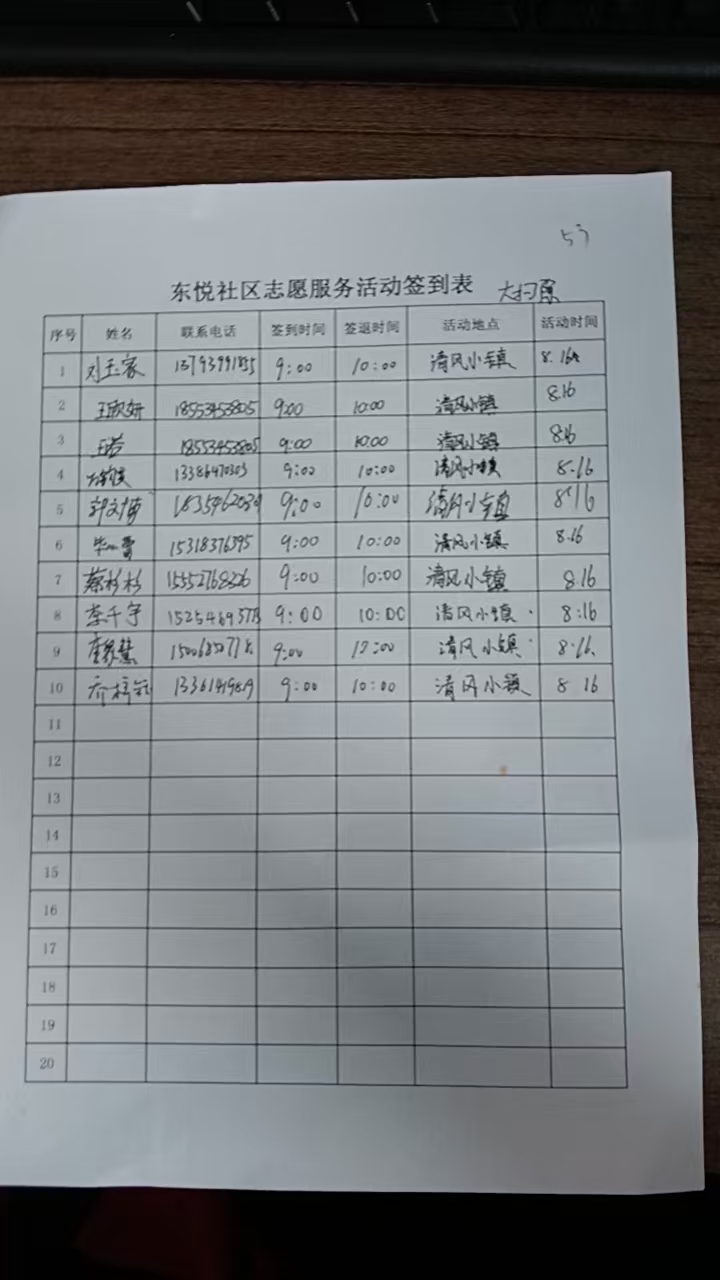 53
东悦社区志愿服务活动签到表 大扫除
序号 姓名 联系电话 签到时间 签退时间 活动地点 活动时间
1 刘玉家 13793991855 9:00 10:00 清风小镇 8.16
2 王欣妍 18553453805 9:00 10:00 清风小镇 8.16
3 18553453805 9:00 10:00 清风小镇 8.16
4 13386470303 9:00 10:00 清风小镇 8.16
5 郭文博 9:00 10:00 清风小镇 8.16
6 15318376395 9:00 10:00 清风小镇 8.16
7 蔡杉杉 15552768326 9:00 10:00 清风小镇 8.16
8 李千宇 9:00 10:00 清风小镇 8:16
9 9:00 清风小镇 8.16
10 9:00 10:00 清风小镇 8 16
11
12
13
14
15
16
17
18
19
20